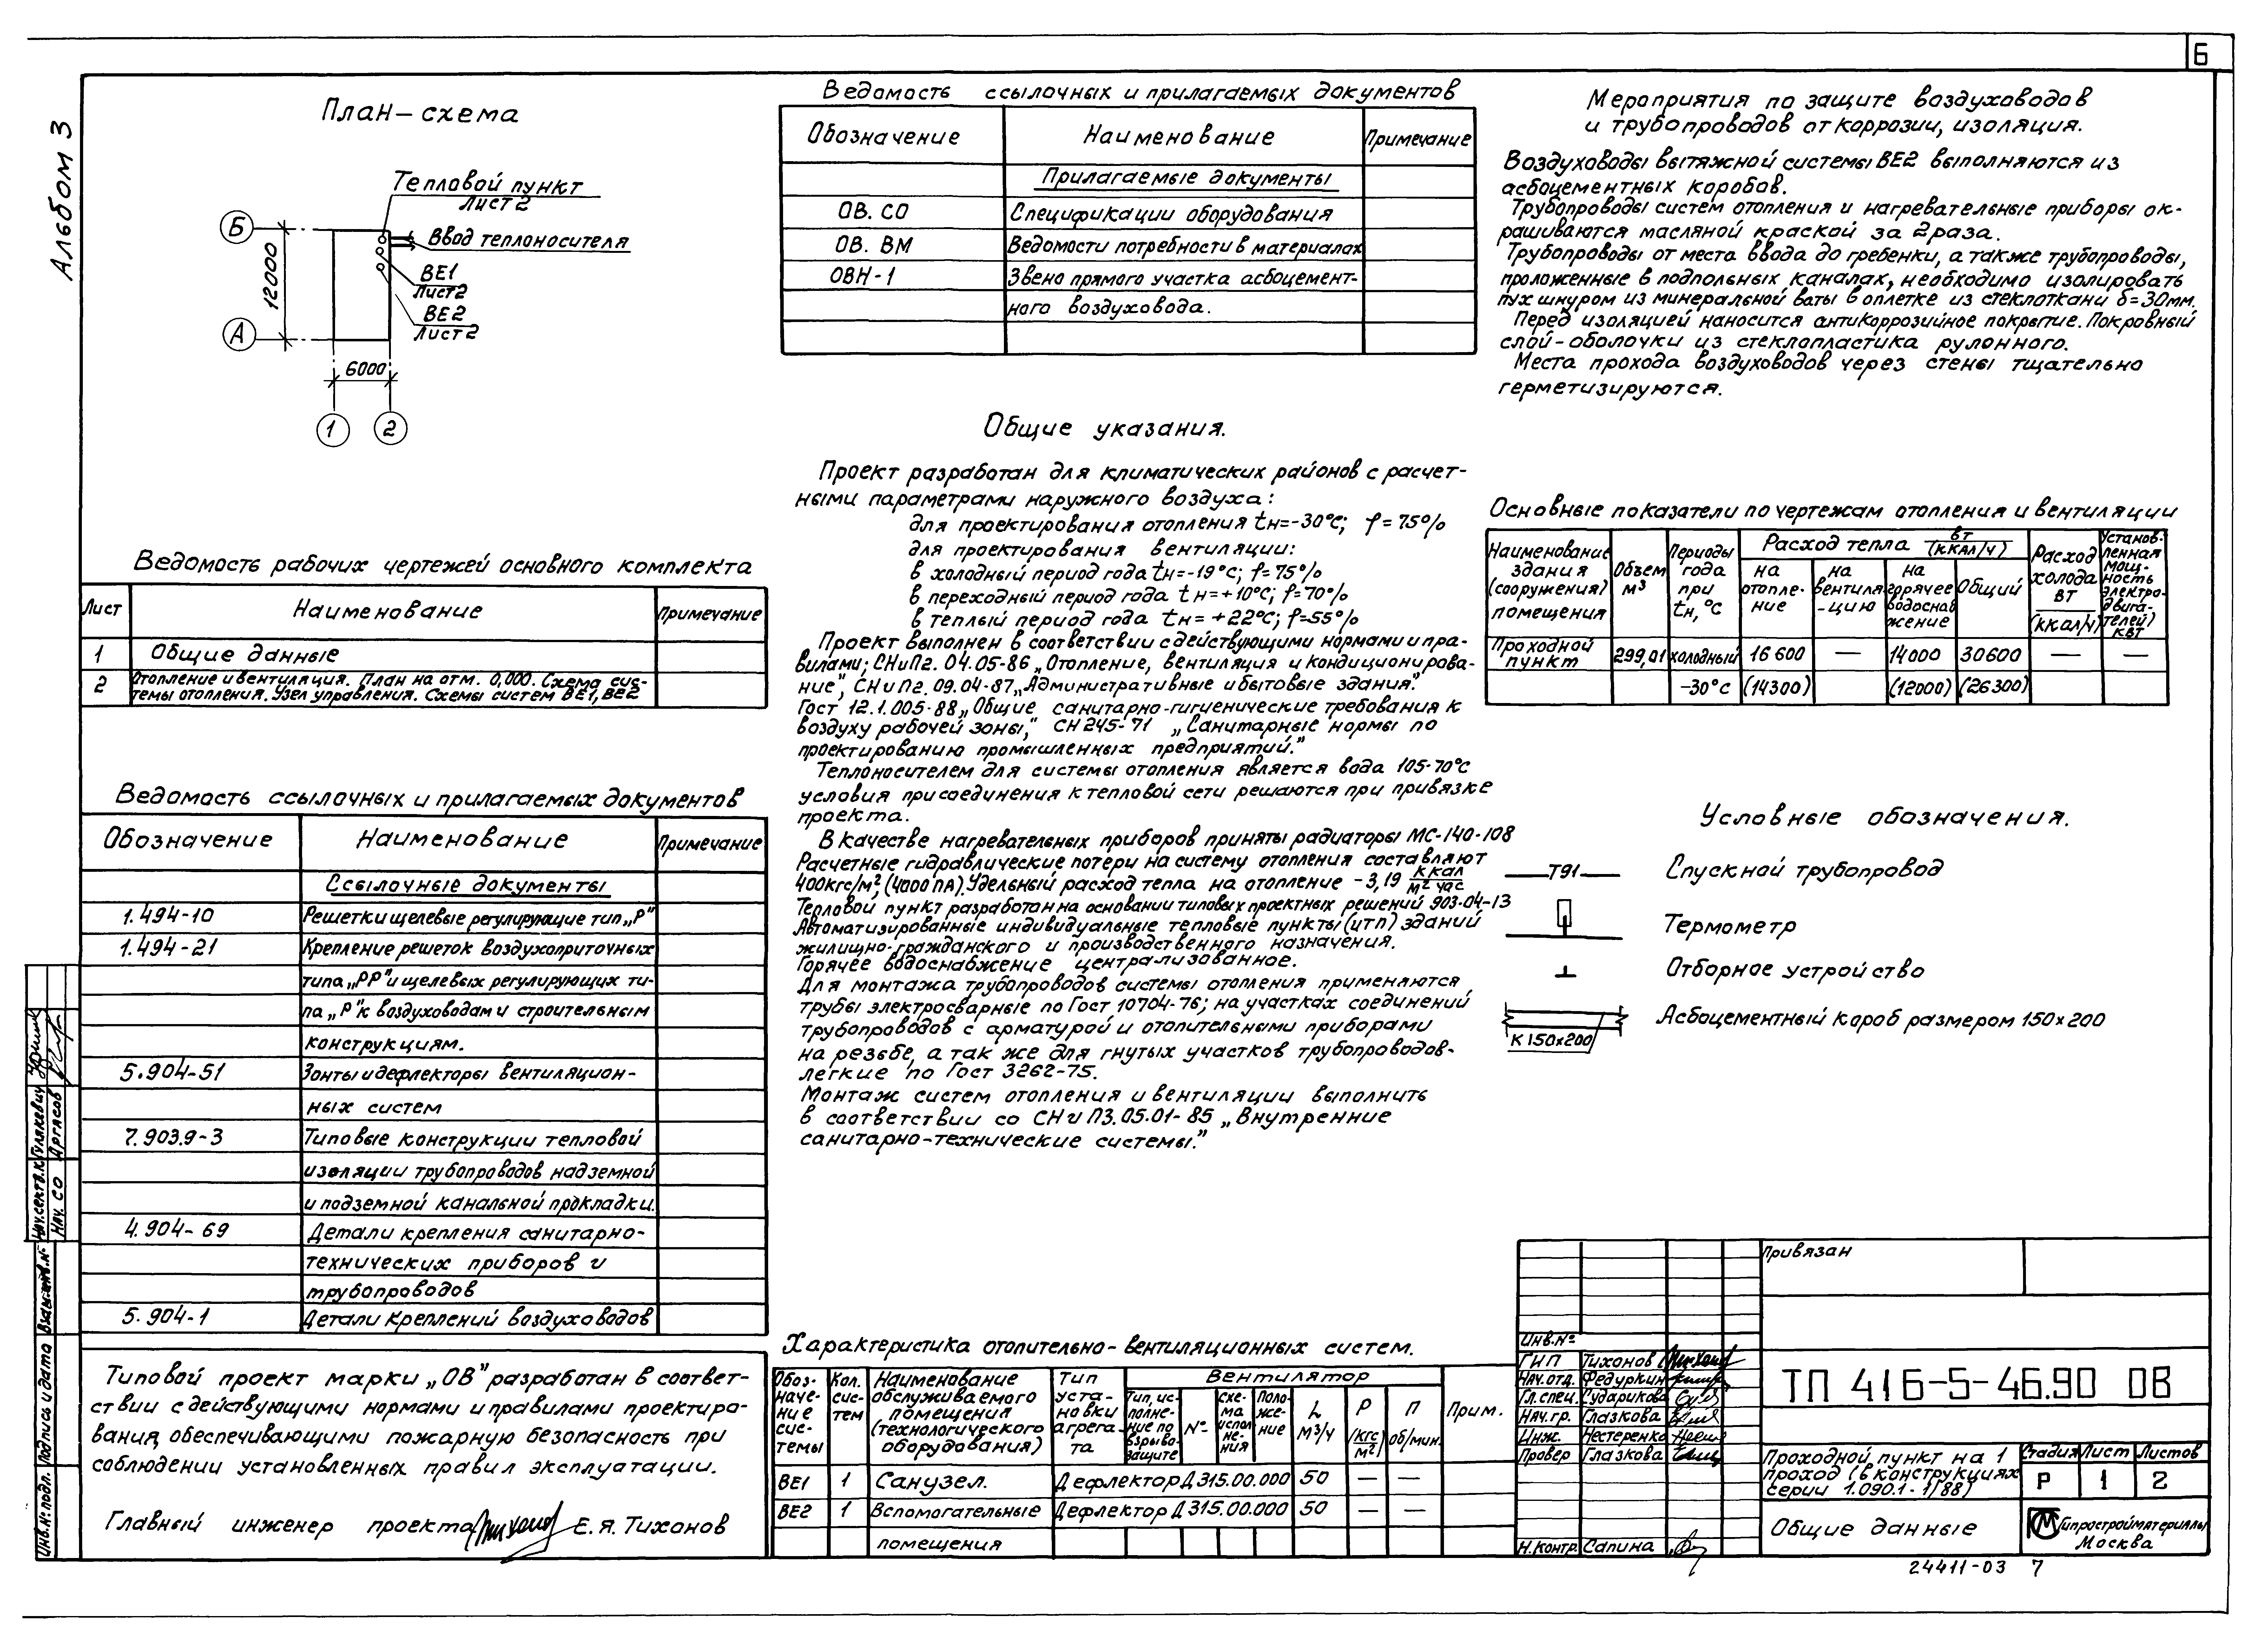 6
Альбом 3
План-схема
Тепловой пункт
Лист 2
Ввод теплоносителя
ВЕ1
Лист 2
ВЕ2
Лист 2
Б
А
12000
6000
1
2
Ведомость рабочих чертежей основного комплекта
Лист Наименование Примечание
1 Общие данные
2 Отопление и вентиляция. План на отм. 0,000. Схема сис-
темы отопления. Узел управления. Схемы систем ВЕ1, ВЕ2
Ведомость ссылочных и прилагаемых документов
Обозначение Наименование Примечание
Ссылочные документы
1.494-10 Решетки щелевые регулирующие тип „Р"
1.494-21 Крепление решеток воздухоприточных
типа „РР" и щелевых регулирующих ти-
па „Р" к воздуховодам и строительным
конструкциям.
5.904-51 Зонты и дефлекторы вентиляцион-
ных систем
7.903.9-3 Типовые конструкции тепловой
изоляции трубопроводов надземной
и подземной канальной прокладки.
4.904-69 Детали крепления санитарно-
технических приборов и
трубопроводов
5.904-1 Детали креплений воздуховодов
Типовой проект марки „ОВ" разработан в соответ-
ствии с действующими нормами и правилами проектиро-
вания, обеспечивающими пожарную безопасность при
соблюдении установленных правил эксплуатации.
Главный инженер проекта Е.Я. Тихонов
Ведомость ссылочных и прилагаемых документов
Обозначение Наименование Примечание
Прилагаемые документы
ОВ. СО Спецификации оборудования
ОВ. ВМ Ведомости потребности в материалах
ОВН-1 Звено прямого участка асбоцемент-
ного воздуховода.
Общие указания.
Проект разработан для климатических районов с расчет-
ными параметрами наружного воздуха:
для проектирования отопления tн=-30°С; f=75%
для проектирования вентиляции:
в холодный период года tн=-19°С; f=75%
в переходный период года tн=+10°С; f=70%
в теплый период года tн=+22°С; f=55%
Проект выполнен в соответствии с действующими нормами и пра-
вилами; СНиП2. 04.05-86 „Отопление, вентиляция и кондиционирова-
ние", СНиП2. 09.04-87 „Административные и бытовые здания".
Гост 12.1.005-88 „Общие санитарно-гигиенические требования к
воздуху рабочей зоны," СН 245-71 „Санитарные нормы по
проектированию промышленных предприятий."
Теплоносителем для системы отопления является вода 105-70°С
условия присоединения к тепловой сети решаются при привязке
проекта.
В качестве нагревательных приборов приняты радиаторы МС-140-108
Расчетные гидравлические потери на систему отопления составляют
400кгс/м², (4000 ПА). Удельный расход тепла на отопление -3,19 ккал/м² час
Тепловой пункт разработан на основании типовых проектных решений 903-04-13
Автоматизированные индивидуальные тепловые пункты (итп) зданий
жилищно-гражданского и производственного назначения.
Горячее водоснабжение централизованное.
Для монтажа трубопроводов системы отопления применяются
трубы электросварные по Гост 10704-76; на участках соединений
трубопроводов с арматурой и отопительными приборами
на резьбе, а так же для гнутых участков трубопроводов-
легкие по Гост 3262-75.
Монтаж систем отопления и вентиляции выполнить
в соответствии со СНиП3.05.01-85 „Внутренние
санитарно-технические системы."
Характеристика отопительно-вентиляционных систем.
Обоз-наче-ние сис-темы Кол. сис-тем Наименование обслуживаемого помещения (технологического оборудования) Тип уста-новки агрега-та Вентилятор Прим.
Тип, ис-полне-ние по взрыво-защите № Схе-ма испол не-ния Поло-же-ние L м³/ч Р (кгс/м²) П об/мин.
ВЕ1 1 Санузел. Дефлектор Д315.00.000 50 — —
ВЕ2 1 Вспомогательные Дефлектор Д315.00.000 50 — —
помещения
Мероприятия по защите воздуховодов
и трубопроводов от коррозии, изоляция.
Воздуховоды вытяжной системы ВЕ2 выполняются из
асбоцементных коробов.
Трубопроводы систем отопления и нагревательные приборы ок-
рашиваются масляной краской за 2 раза.
Трубопроводы от места ввода до гребенки, а также трубопроводы,
проложенные в подпольных каналах, необходимо изолировать
пух шнуром из минеральной ваты в оплетке из стеклоткани δ=30мм.
Перед изоляцией наносится антикоррозийное покрытие. Покровный
слой-оболочки из стеклопластика рулонного.
Места прохода воздуховодов через стены тщательно
герметизируются.
Основные показатели по чертежам отопления и вентиляции
Наименование здания (сооружения) помещения Объем м³ Периоды года при tн, °С Расход тепла Вт/(ккал/ч) Расход холода Вт (ккал/ч) Установ-ленная мощ-ность электро-двига-телей) кВт
на отопле-ние на вентиля-цию на горячее водоснаб жение Общий
Проходной пункт 299,01 холодный 16600 — 14000 30600 — —
-30°С (14300) (12000) (26300)
Условные обозначения.
Т91 Спускной трубопровод
Термометр
Отборное устройство
К 150×200 Асбоцементный короб размером 150×200
Привязан
Инв.№
ГИП Тихонов
Нач.отд. Федуркин
Гл.спец. Сударикова
Нач.гр. Глазкова
Инж. Нестеренко
Провер Глазкова
Н.контр. Сапина
ТП 416-5-46.90 ОВ
Проходной пункт на 1
проход (в конструкциях
серии 1.090.1-1/88)
Стадия Лист Листов
Р 1 2
Общие данные
Гипростройматериалы
Москва
24411-03 7
Нач. СО Аргасов
Инв.№ подл. Подпись и дата Взам.инв.№